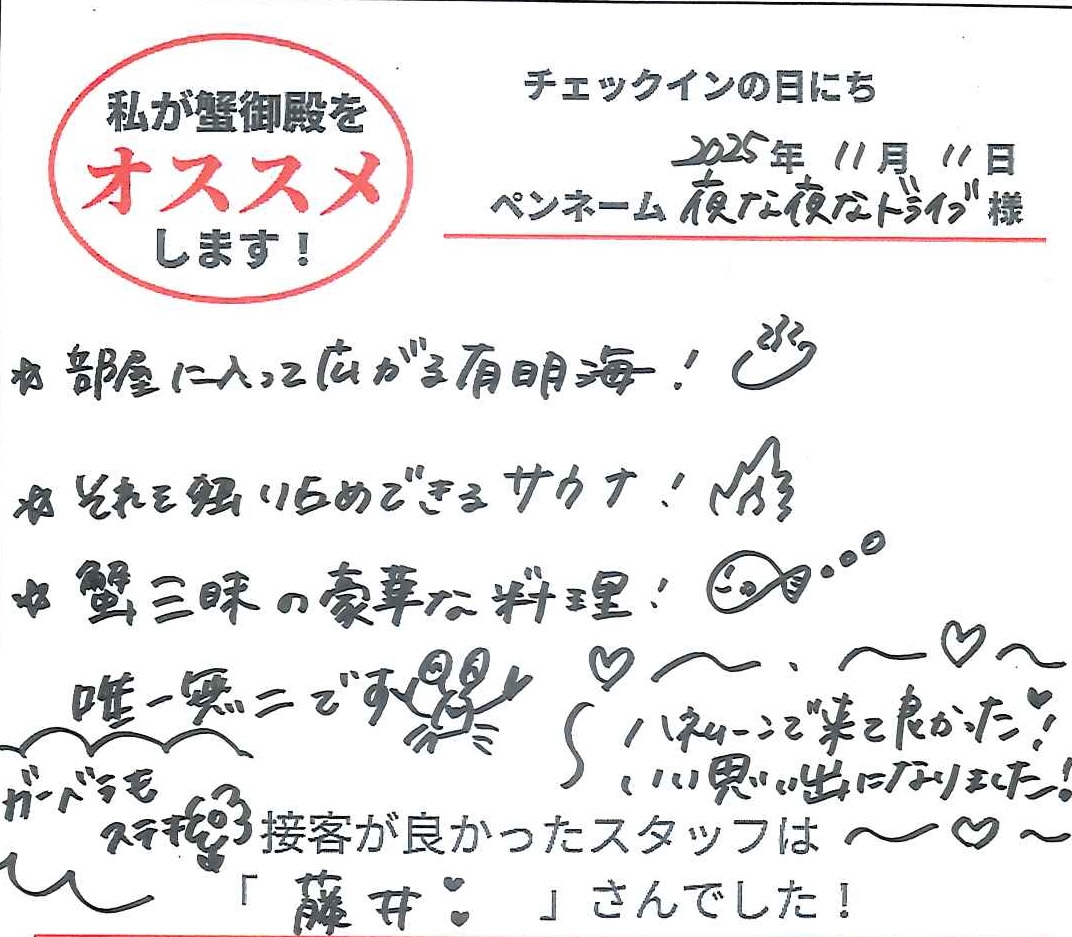 私が蟹御殿を
オススメ
します！
チェックインの日にち
2025年 11月 11日
ペンネーム 夜な夜なドライブ 様
☆ 部屋に入って広がる有明海！
☆ それを独り占めできるサウナ！
☆ 蟹三昧の豪華な料理！
唯一無二です
ハネムーンで来て良かった！
いい思い出になりました！
ガーベラも
ステキ
接客が良かったスタッフは
「 藤井 」さんでした！